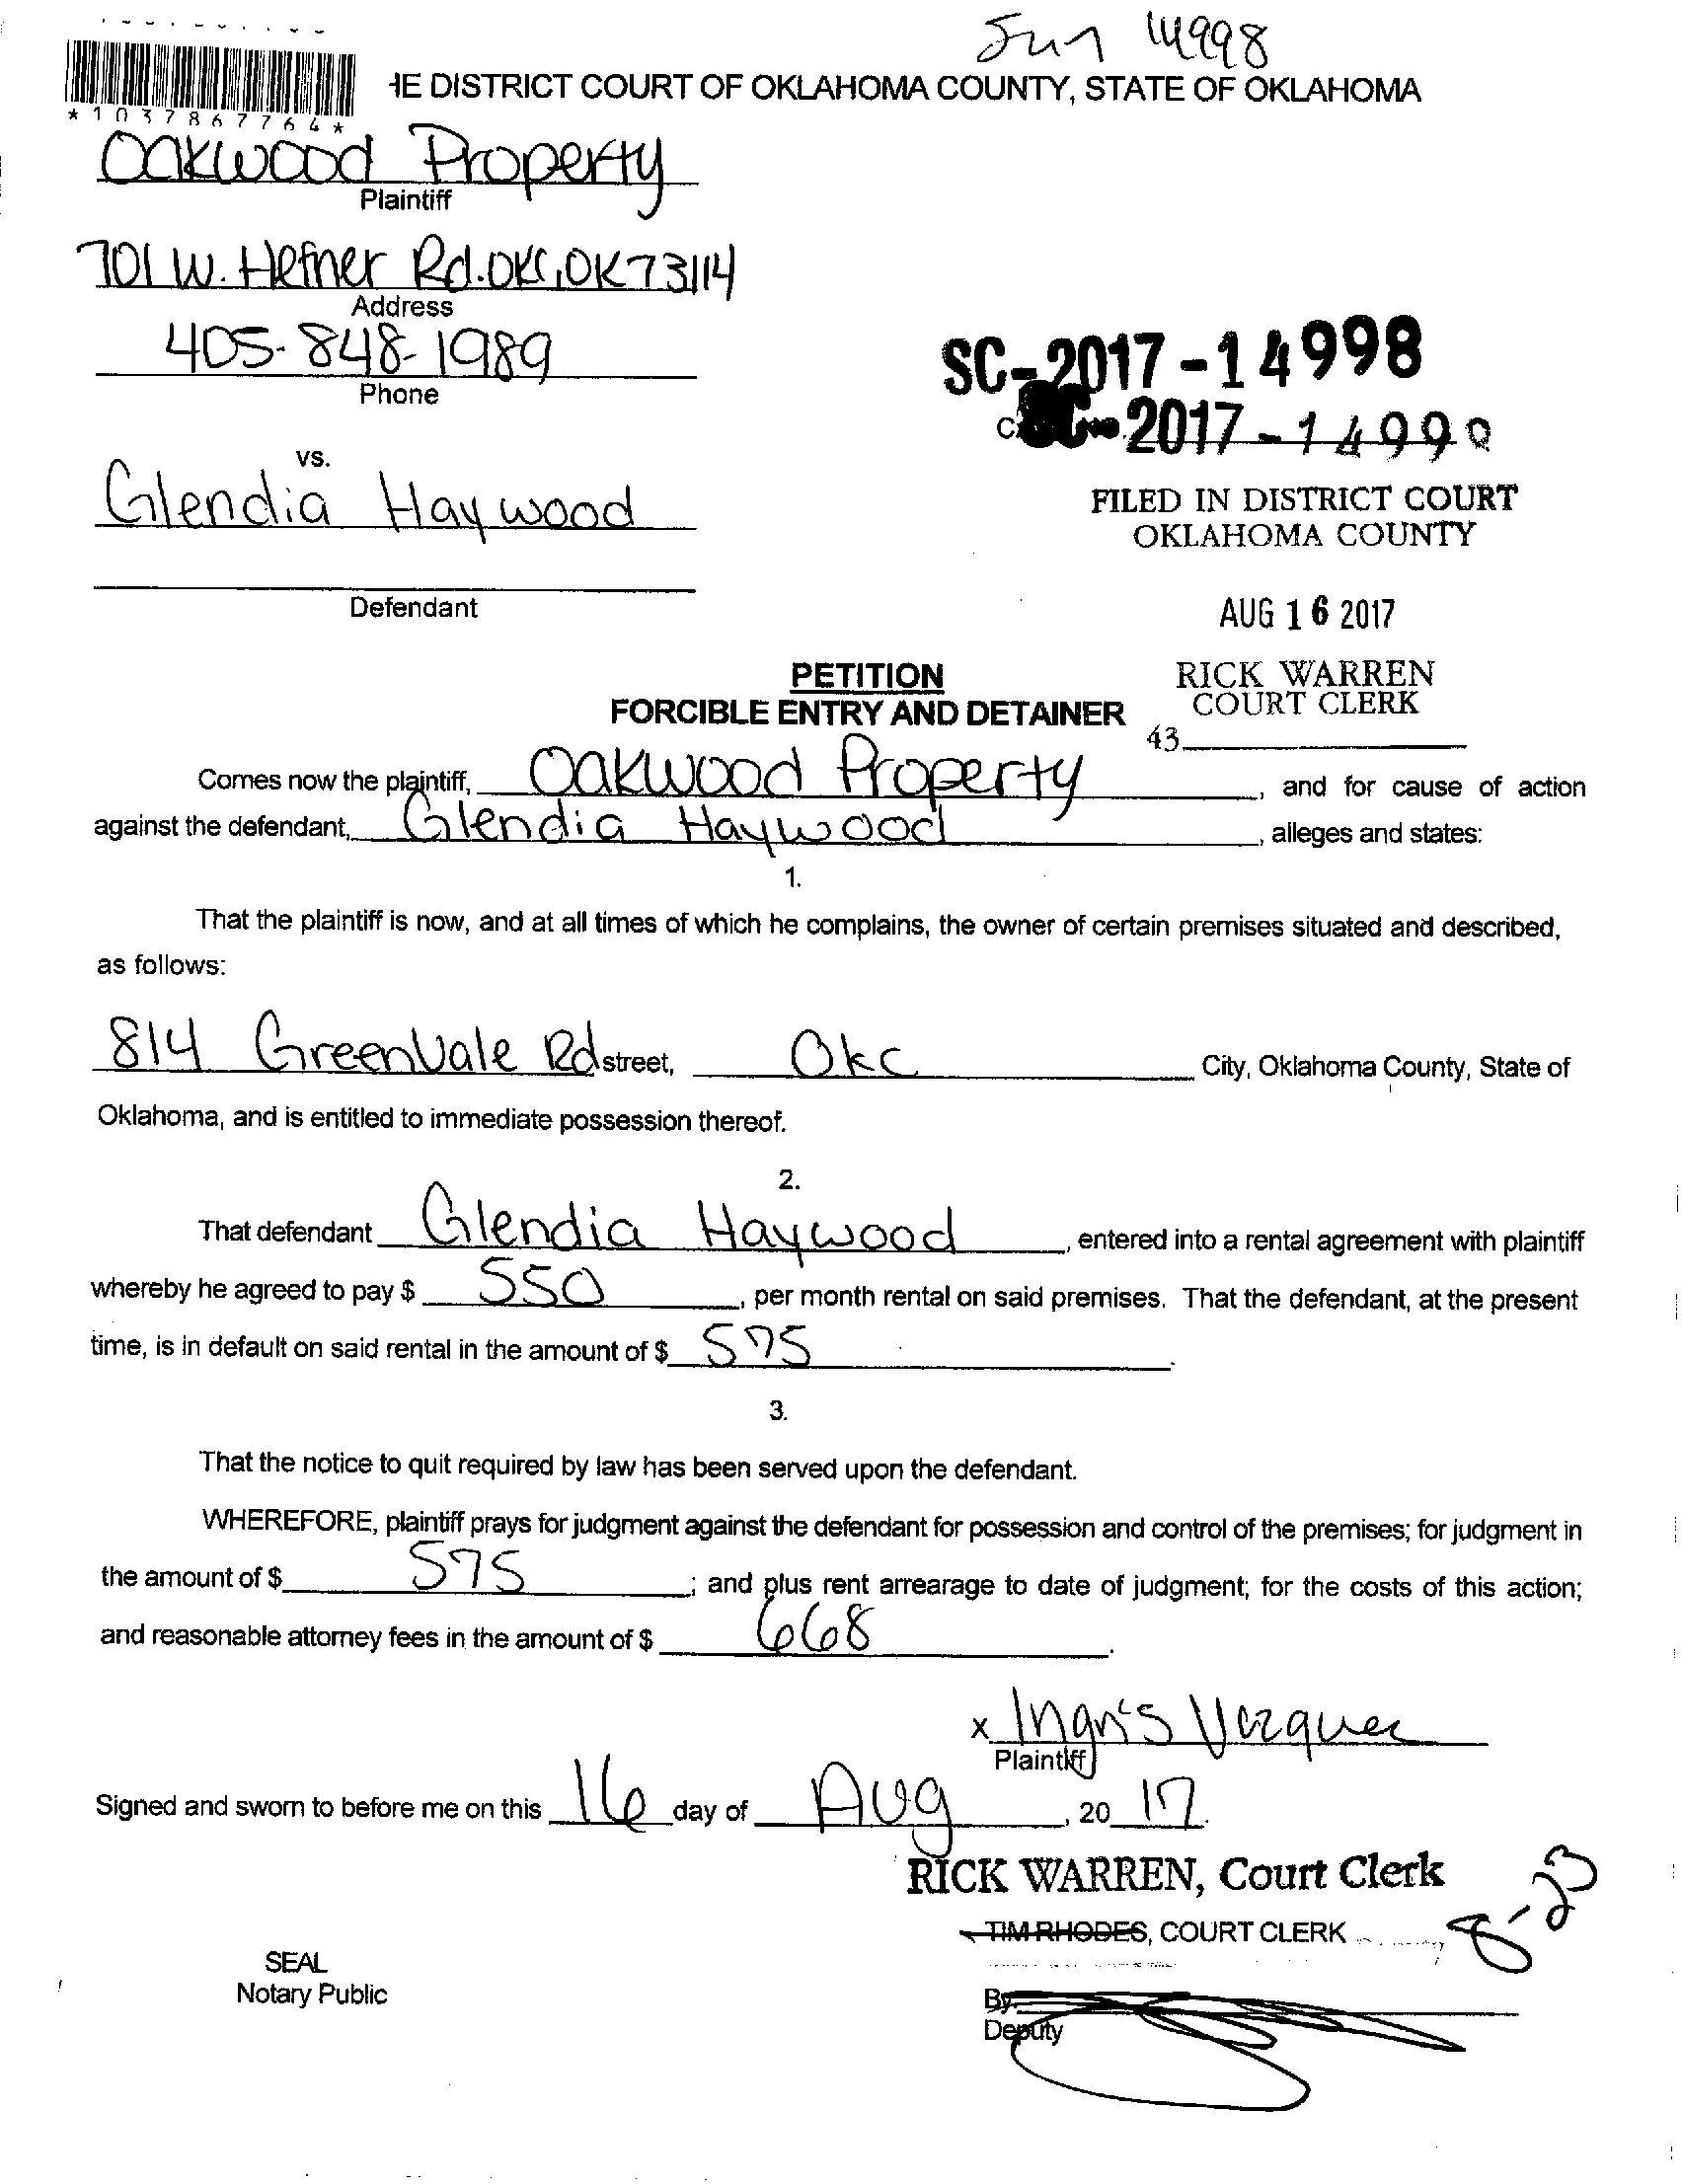 Jun 14998
HE DISTRICT COURT OF OKLAHOMA COUNTY, STATE OF OKLAHOMA
*1037867764*
Oakwood Property
Plaintiff
701 W. Hefner Rd. OKC, OK 73114
Address
405-848-1989
Phone
SC-2017-14998
2017-1499
vs.
Glendia Haywood
FILED IN DISTRICT COURT
OKLAHOMA COUNTY
Defendant
AUG 16 2017
PETITION
FORCIBLE ENTRY AND DETAINER
RICK WARREN
COURT CLERK
43
Comes now the plaintiff, Oakwood Property, and for cause of action
against the defendant, Glendia Haywood, alleges and states:
1.
That the plaintiff is now, and at all times of which he complains, the owner of certain premises situated and described,
as follows:
814 Greenvale Rd street, Okc City, Oklahoma County, State of
Oklahoma, and is entitled to immediate possession thereof.
2.
That defendant Glendia Haywood, entered into a rental agreement with plaintiff
whereby he agreed to pay $ 550, per month rental on said premises. That the defendant, at the present
time, is in default on said rental in the amount of $ 575.
3.
That the notice to quit required by law has been served upon the defendant.
WHEREFORE, plaintiff prays for judgment against the defendant for possession and control of the premises; for judgment in
the amount of $ 575; and plus rent arrearage to date of judgment; for the costs of this action;
and reasonable attorney fees in the amount of $ 668.
x Ingris Vazquez
Plaintiff
Signed and sworn to before me on this 16 day of Aug, 20 17.
RICK WARREN, Court Clerk
TIM RHODES, COURT CLERK
8-23
SEAL
Notary Public
By:
Deputy